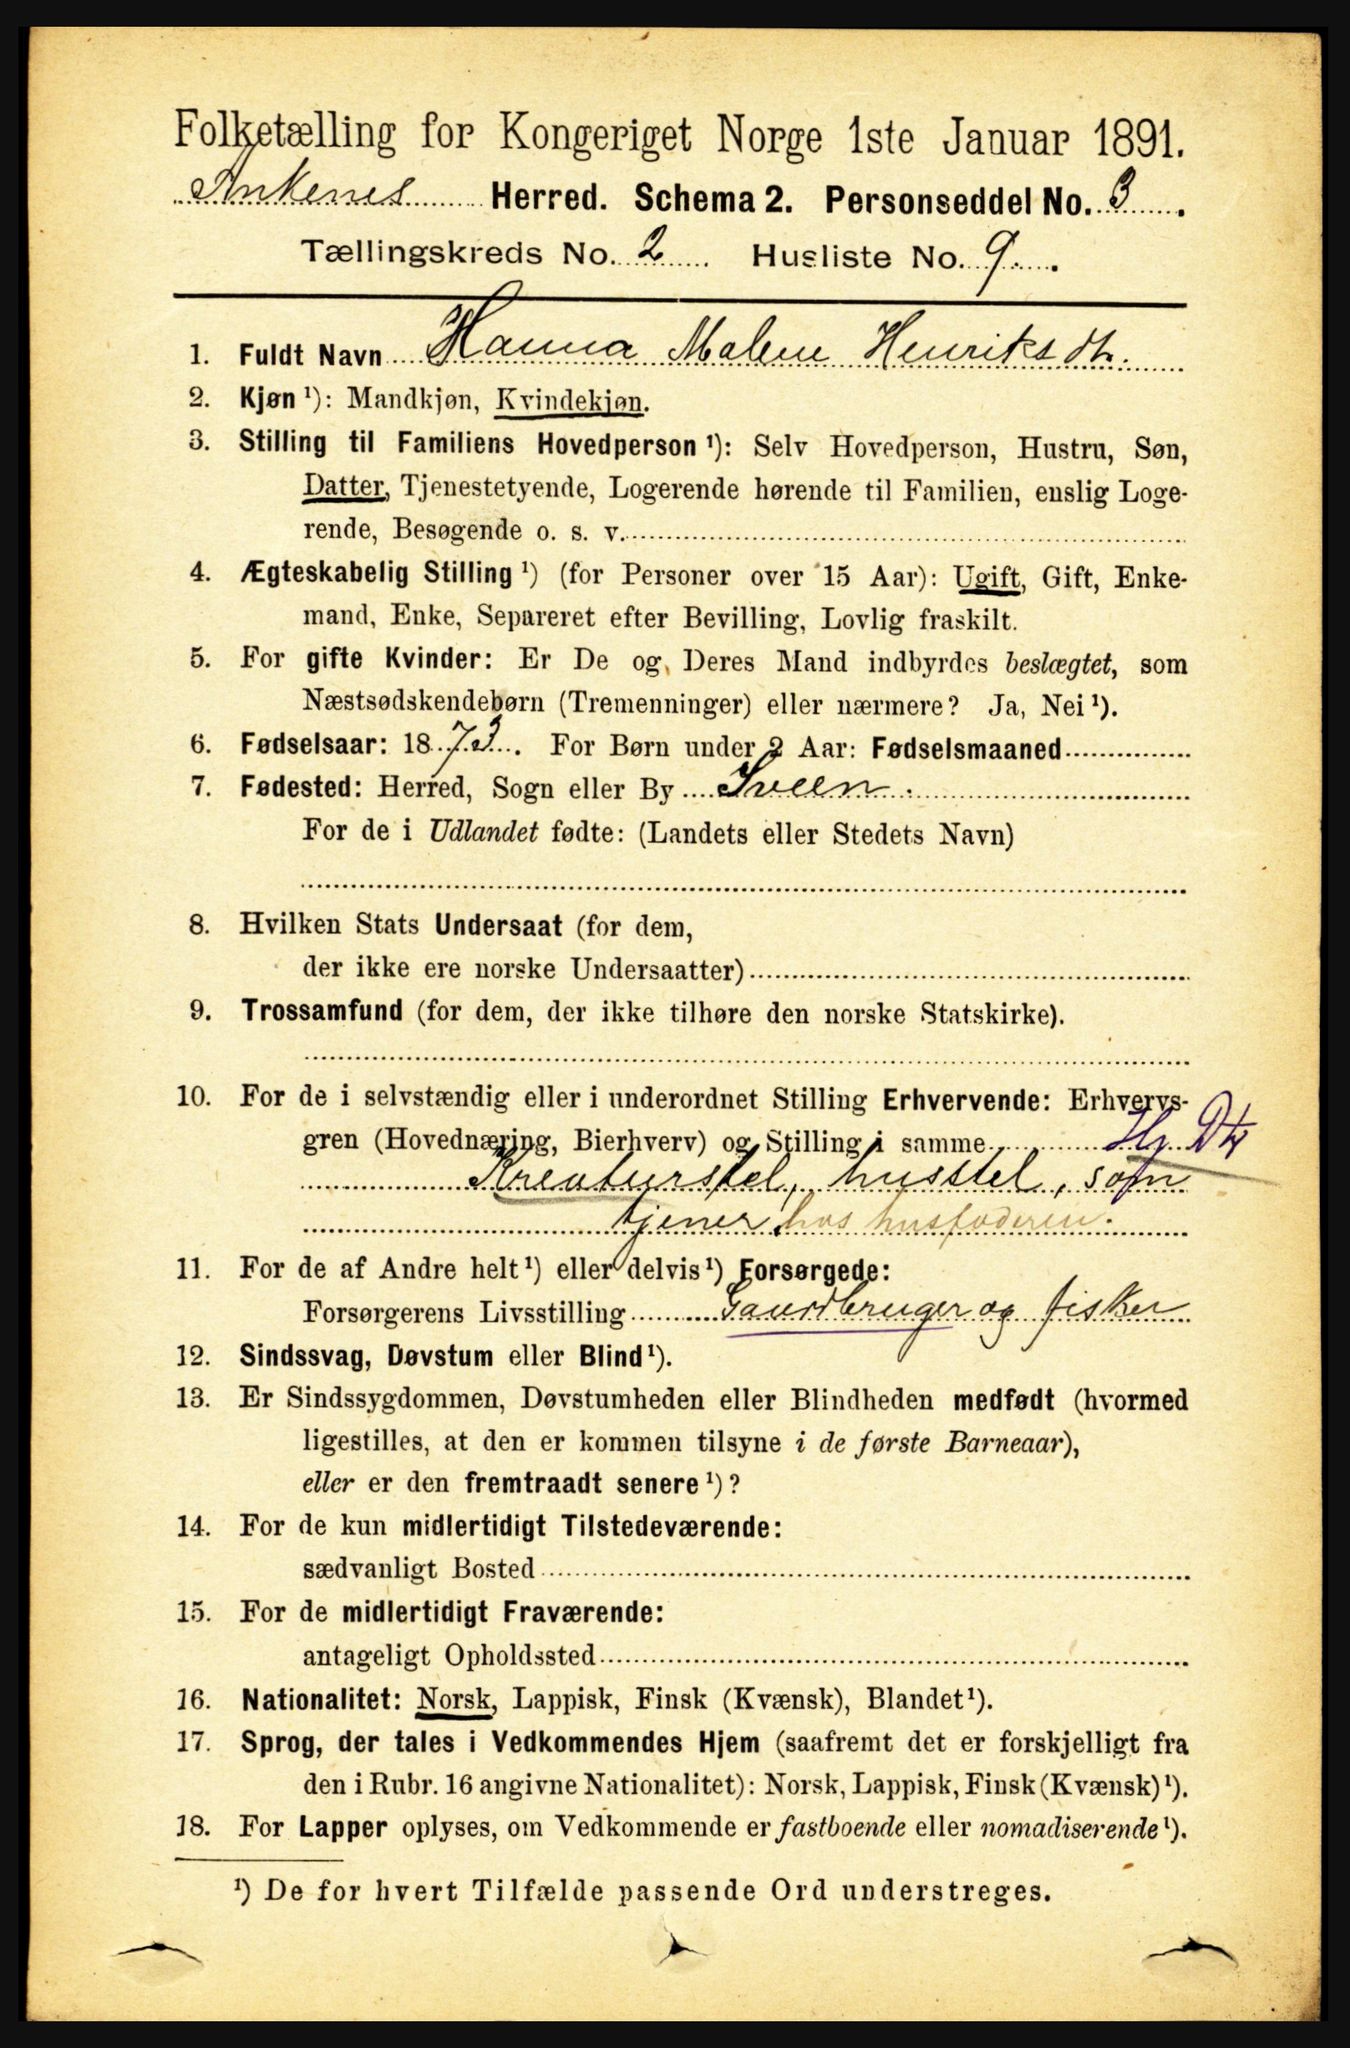 Folketælling for Kongeriget Norge 1ste Januar 1891.
Ankenes Herred. Schema 2. Personseddel No. 3.
Tællingskreds No. 2. Husliste No. 9.
1. Fuldt Navn Hanna Malene Henriksdtr.
2. Kjøn ¹): Mandkjøn, Kvindekjøn.
3. Stilling til Familiens Hovedperson ¹): Selv Hovedperson, Hustru, Søn,
Datter, Tjenestetyende, Logerende hørende til Familien, enslig Loge-
rende, Besøgende o. s. v.
4. Ægteskabelig Stilling ¹) (for Personer over 15 Aar): Ugift, Gift, Enke-
mand, Enke, Separeret efter Bevilling, Lovlig fraskilt.
5. For gifte Kvinder: Er De og Deres Mand indbyrdes beslægtet, som
Næstsødskendebørn (Tremenninger) eller nærmere? Ja, Nei ¹).
6. Fødselsaar: 1873. For Børn under 2 Aar: Fødselsmaaned
7. Fødested: Herred, Sogn eller By Sveen.
For de i Udlandet fødte: (Landets eller Stedets Navn)
8. Hvilken Stats Undersaat (for dem,
der ikke ere norske Undersaatter)
9. Trossamfund (for dem, der ikke tilhøre den norske Statskirke).
10. For de i selvstændig eller i underordnet Stilling Erhvervende: Erhvervs-
gren (Hovednæring, Bierhverv) og Stilling i samme Hj. Dtr
Kreaturstel, husstel, som
tjener hos husfaderen.
11. For de af Andre helt ¹) eller delvis ¹) Forsørgede:
Forsørgerens Livsstilling Gaardbruger og fisker
12. Sindssvag, Døvstum eller Blind ¹).
13. Er Sindssygdommen, Døvstumheden eller Blindheden medfødt (hvormed
ligestilles, at den er kommen tilsyne i de første Barneaar),
eller er den fremtraadt senere ¹)?
14. For de kun midlertidigt Tilstedeværende:
sædvanligt Bosted
15. For de midlertidigt Fraværende:
antageligt Opholdssted
16. Nationalitet: Norsk, Lappisk, Finsk (Kvænsk), Blandet ¹).
17. Sprog, der tales i Vedkommendes Hjem (saafremt det er forskjelligt fra
den i Rubr. 16 angivne Nationalitet): Norsk, Lappisk, Finsk (Kvænsk) ¹).
18. For Lapper oplyses, om Vedkommende er fastboende eller nomadiserende ¹).
¹) De for hvert Tilfælde passende Ord understreges.